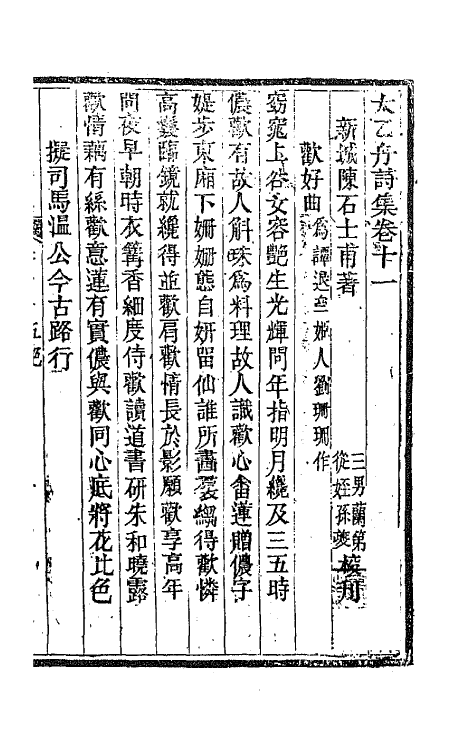 太乙舟詩集卷十一
新城陳石士甫著
三男蘭第
從姪孫夔
校刊
歡好曲為譚退齋姬人劉珊珊作
窈窕上谷女容艷生光輝問年指明月纔及三五時
儂歡有故人斛珠為料理故人識歡心畬蓮贈儂字
媞步東廂下姍姍態自妍留仙誰所畫裊縐得歡憐
高鬟臨鏡就纔得並歡肩歡情長於影願歡享高年
問夜早朝時衣篝香細度侍歡讀道書研朱和曉露
歡情藕有絲歡意蓮有實儂與歡同心底將花比色
擬司馬溫公今古路行